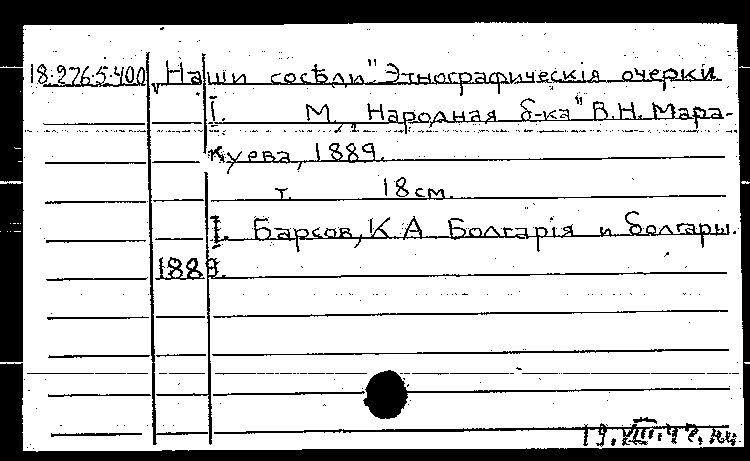 18.276.5.400 „Наши сосѣди" Этнографическія очерки
I. М., „Народная б-ка" В.Н. Мара-
куева, 1889.
т. 18 см.
I. Барсов, К.А Болгарія и болгары.
1889.
19.VIII.47.